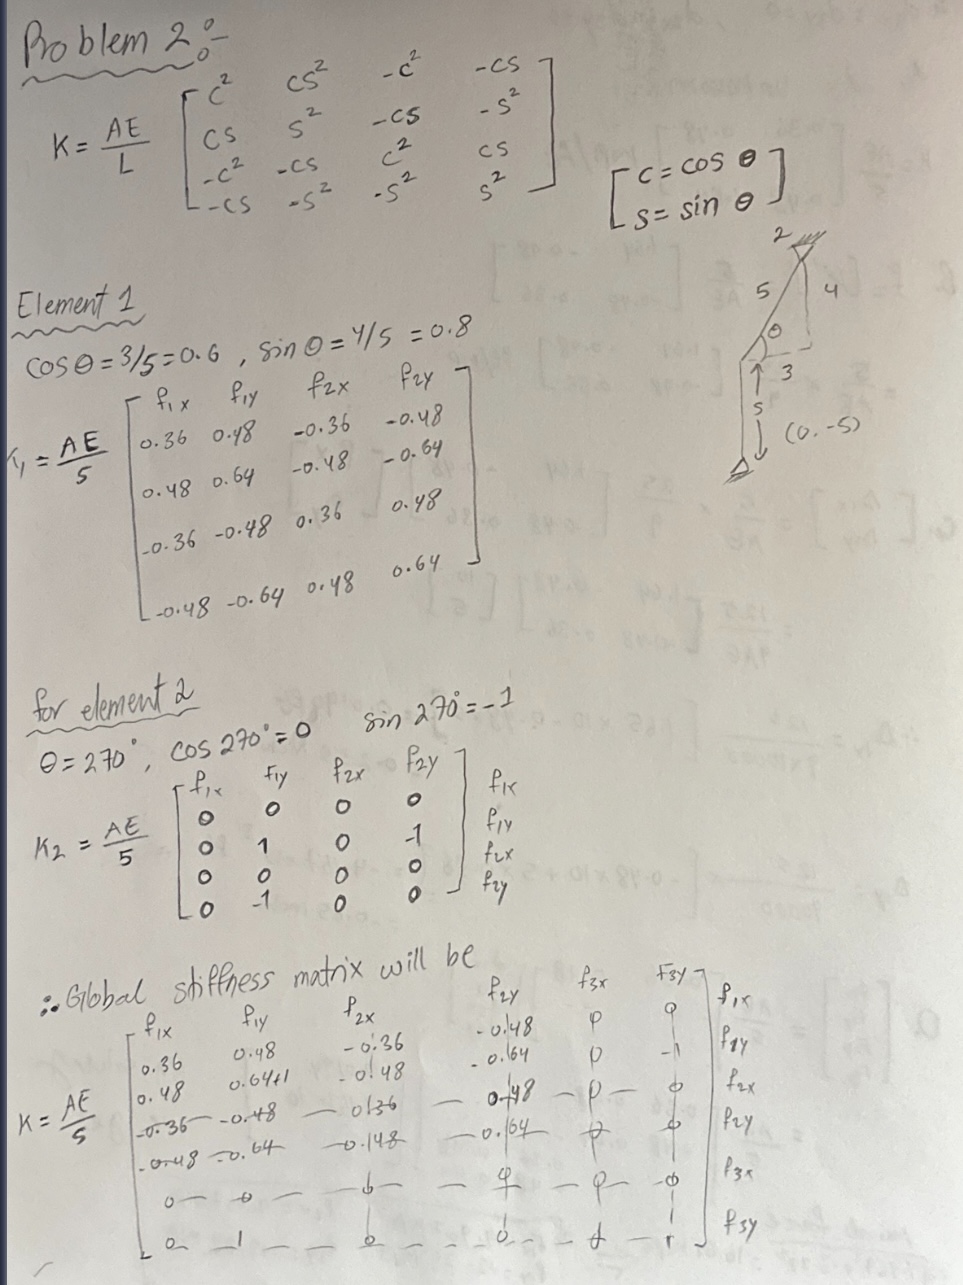 Problem 2:-
K = AE/L [ c² cs² -c² -cs
cs s² -cs -s²
-c² -cs c² cs
-cs -s² -s² s² ]
[ c = cos θ
s = sin θ ]
2
5 4
θ
3
5
(0,-5)
Element 1
cos θ = 3/5 = 0.6 , sin θ = 4/5 = 0.8
f1x f1y f2x f2y
K1 = AE/5 [ 0.36 0.48 -0.36 -0.48
0.48 0.64 -0.48 -0.64
-0.36 -0.48 0.36 0.48
-0.48 -0.64 0.48 0.64 ]
for element 2
θ = 270°, cos 270° = 0 sin 270° = -1
f1x f1y f2x f2y
K2 = AE/5 [ 0 0 0 0 ] f1x
0 1 0 -1 f1y
0 0 0 0 f2x
0 -1 0 0 f2y
∴ Global stiffness matrix will be
f1x f1y f2x f2y f3x f3y
K = AE/5 [ 0.36 0.48 -0.36 -0.48 0 0 ] f1x
0.48 0.64+1 -0.48 -0.64 0 -1 f1y
-0.36 -0.48 0.36 0.48 0 0 f2x
-0.48 -0.64 -0.148 -0.64 0 0 f2y
0 0 0 0 0 0 f3x
0 -1 0 0 0 1 f3y